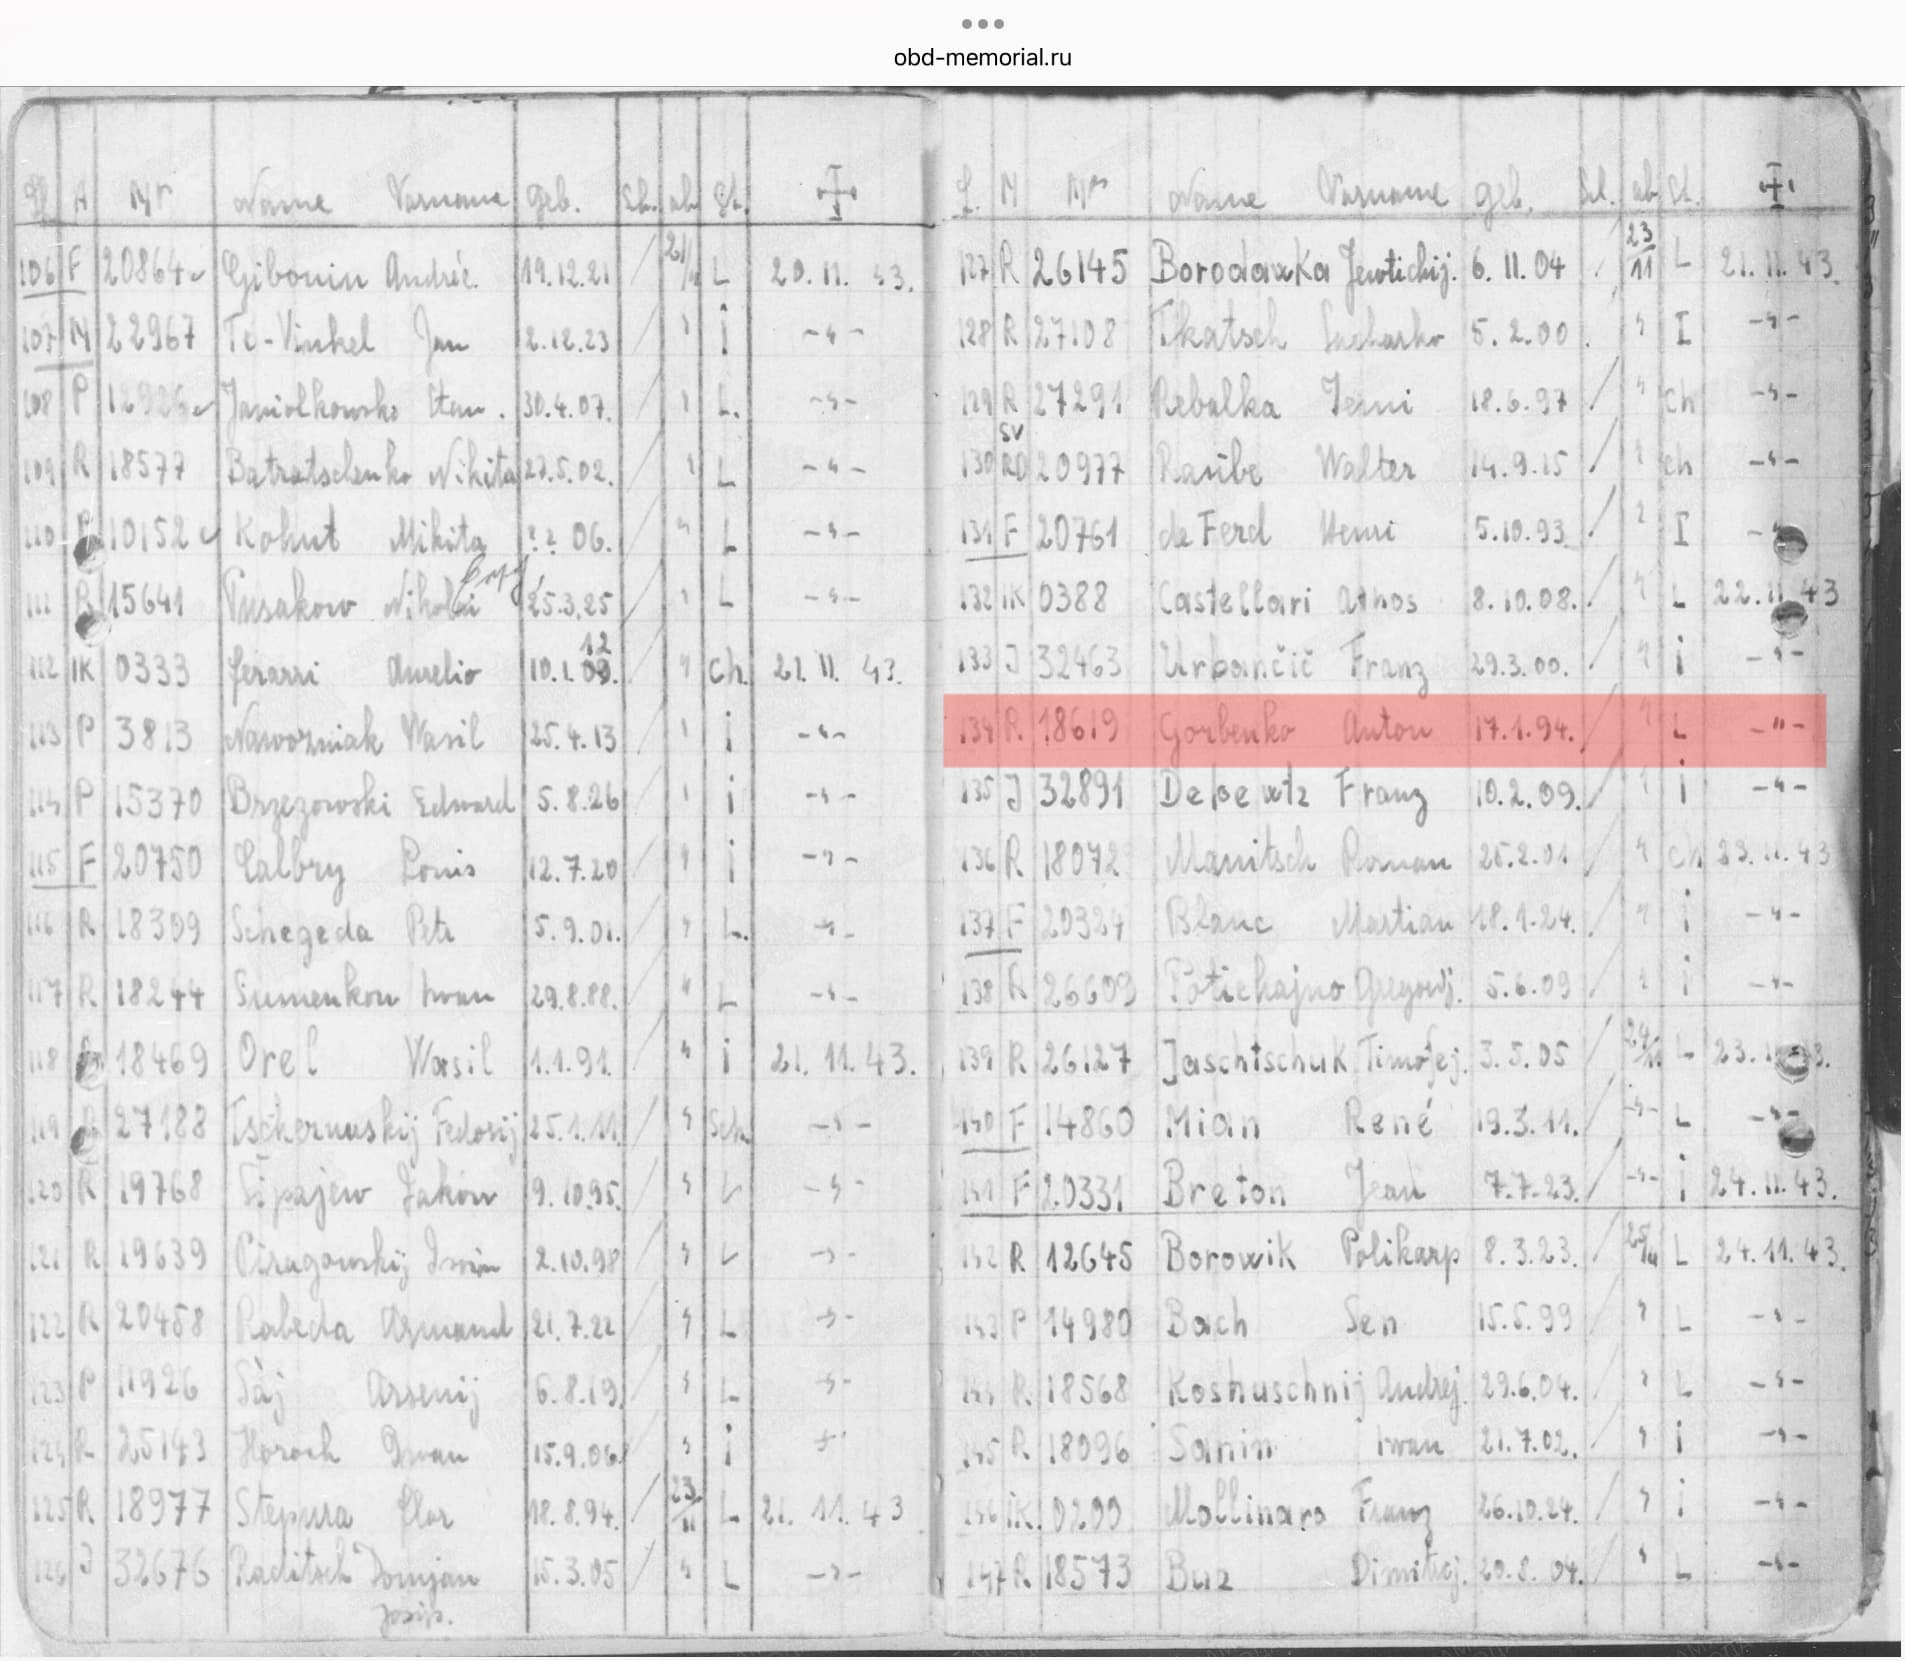 obd-memorial.ru
A Nr Name Vorname geb. Sch. ab. St.
106 F 20864 Gibouin Andrée. 19.12.21 21/11 L 20.11.43.
107 M 22967 Te-Vinkel Jan 2.12.23 " i -"-
108 P Janiolkowski Stan. 30.4.07. " L. -"-
109 R 18577 Batratschenko Nikita 27.5.02. " L -"-
110 10152 Kohut Mikita ?.?.06. " L -"-
111 R 15641 Pusakow Nikolai 25.3.25 " L -"-
112 IK 0333 ferarri Aurelio 10.1.09. 12 " Ch. 21.11.43.
113 P 3813 Nawozniak Wasil 25.4.13 " i -"-
114 P 15370 Brzezowski Edward 5.8.26 " i -"-
115 F 20750 Calbry Louis 12.7.20 " i -"-
116 R 18309 Schegeda Petr 5.9.01. " L. -"-
117 R 18244 Sumenkow Iwan 29.8.88. " L -"-
118 18469 Orel Wasil 1.1.91. " i 21.11.43.
119 27188 Tschernuskij Fedosij 25.1.11. " Sch. -"-
120 R 19768 Sipajew Jakow 9.10.95. " L -"-
121 R 19639 Piragowskij 2.10.98 " L -"-
122 R 20458 Rabeda Armand 21.7.22 " L -"-
123 P 11926 Saj Arsenij 6.8.19. " L -"-
124 R 25143 Horoch Iwan 15.9.06. " i -"-
125 R 18977 Stepura flor 18.8.94. 23/11 L 21.11.43
126 J 32676 Raditsch Domjan 15.3.05 " L -"-
Josip.
L. N Nr Name Vorname geb. ab St.
127 R 26145 Borodawka Jewtichij. 6.11.04 23/11 L 21.11.43.
128 R 27108 Tkatsch Sacharko 5.2.00. " I -"-
129 R 27291 Rebalka 18.6.97 " ch -"-
SV
130 RD 20977 Raube Walter 14.9.15 " ch -"-
131 F 20761 de Ferd Henri 5.10.93. " I -"-
132 IK 0388 Castellari Athos 8.10.08. " L 22.11.43
133 J 32463 Urbančič Franz 29.3.00. " i -"-
134 R. 18619 Gorbenko Anton 17.1.94. " L -"-
135 J 32891 Franz 10.2.09. " i -"-
136 R 18072 Manitsch Roman 25.2.01 " ch 23.11.43
137 F 20324 Blanc Martian 18.1.24. " i -"-
138 R 26609 Potichajno Gregorij. 5.6.09 " i -"-
139 R 26127 Jaschtschuk Timofej. 3.5.05 24/11 L 23.11.43.
140 F 14860 Mian René 19.3.11. -"- L -"-
141 F 20331 Breton Jean 7.7.23. -"- i 24.11.43.
142 R 12645 Borowik Polikarp 8.3.23. 25/11 L 24.11.43.
143 P 14980 Bach Sen 15.5.99 " L -"-
144 R. 18568 Koshuschnij Andrej. 29.6.04. " L -"-
145 R. 18096 Sanin Iwan 21.7.02. " i -"-
146 IK. 0200 Mollinaro Franz 26.10.24. " i -"-
147 R 18573 Buz Dimitrij. 20.8.04. " L -"-